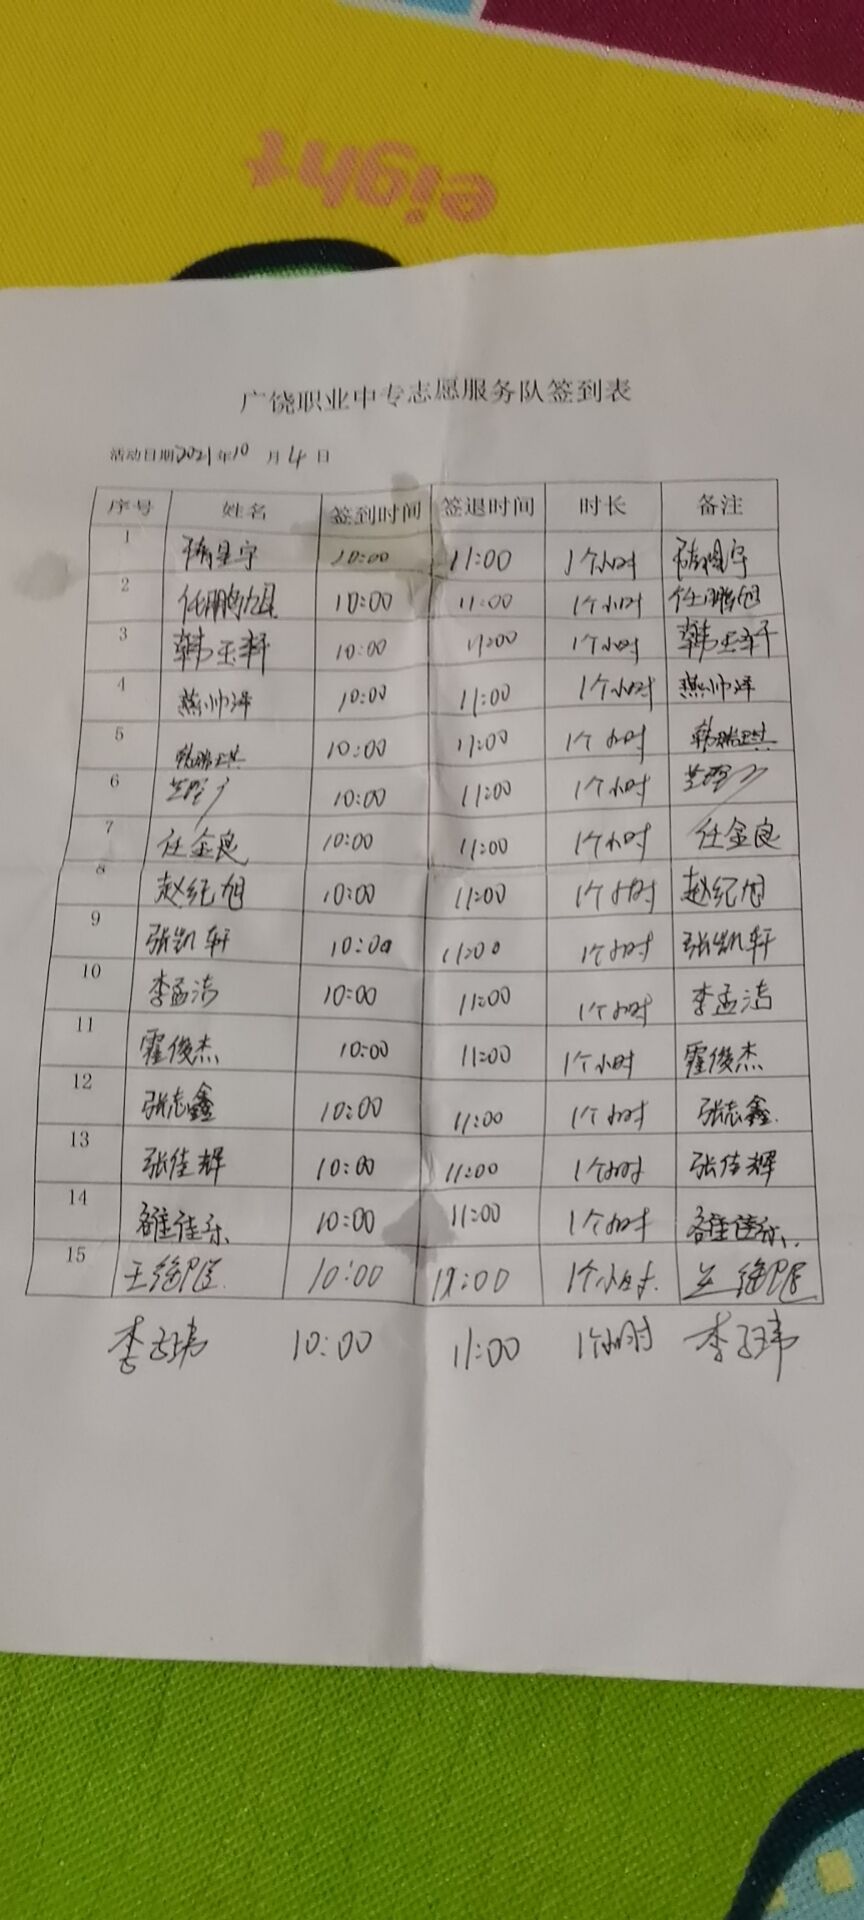 eight
广饶职业中专志愿服务队签到表
活动日期2021年10月4日
序号 姓名 签到时间 签退时间 时长 备注
1 10:00 11:00 1个小时
2 任鹏旭 10:00 11:00 1个小时 任鹏旭
3 韩玉轩 10:00 11:00 1个小时 韩玉轩
4 燕帅泽 10:00 11:00 1个小时 燕帅泽
5 韩瑞琪 10:00 11:00 1个小时 韩瑞琪
6 10:00 11:00 1个小时
7 任金良 10:00 11:00 1个小时 任金良
8 赵纪旭 10:00 11:00 1个小时 赵纪旭
9 张凯轩 10:00 11:00 1个小时 张凯轩
10 李孟洁 10:00 11:00 1个小时 李孟洁
11 霍俊杰 10:00 11:00 1个小时 霍俊杰
12 张志鑫 10:00 11:00 1个小时 张志鑫
13 张佳辉 10:00 11:00 1个小时 张佳辉
14 10:00 11:00 1个小时
15 10:00 11:00 1个小时
李子玮 10:00 11:00 1个小时 李子玮